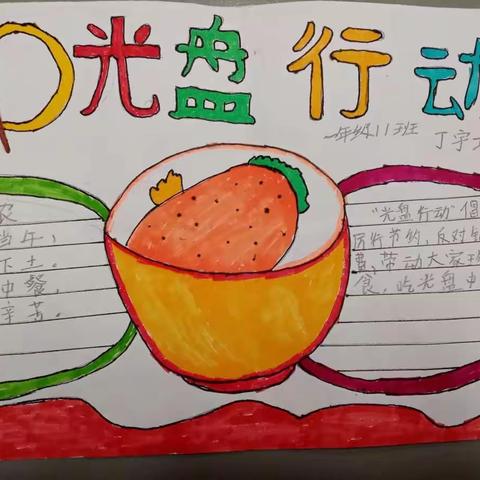 光盘行动
一年级11班 丁宇
农
当午，
下土。
中餐，
辛苦。
"光盘行动"倡
厉行节约，反对
费，带动大家珍
食，吃光盘中